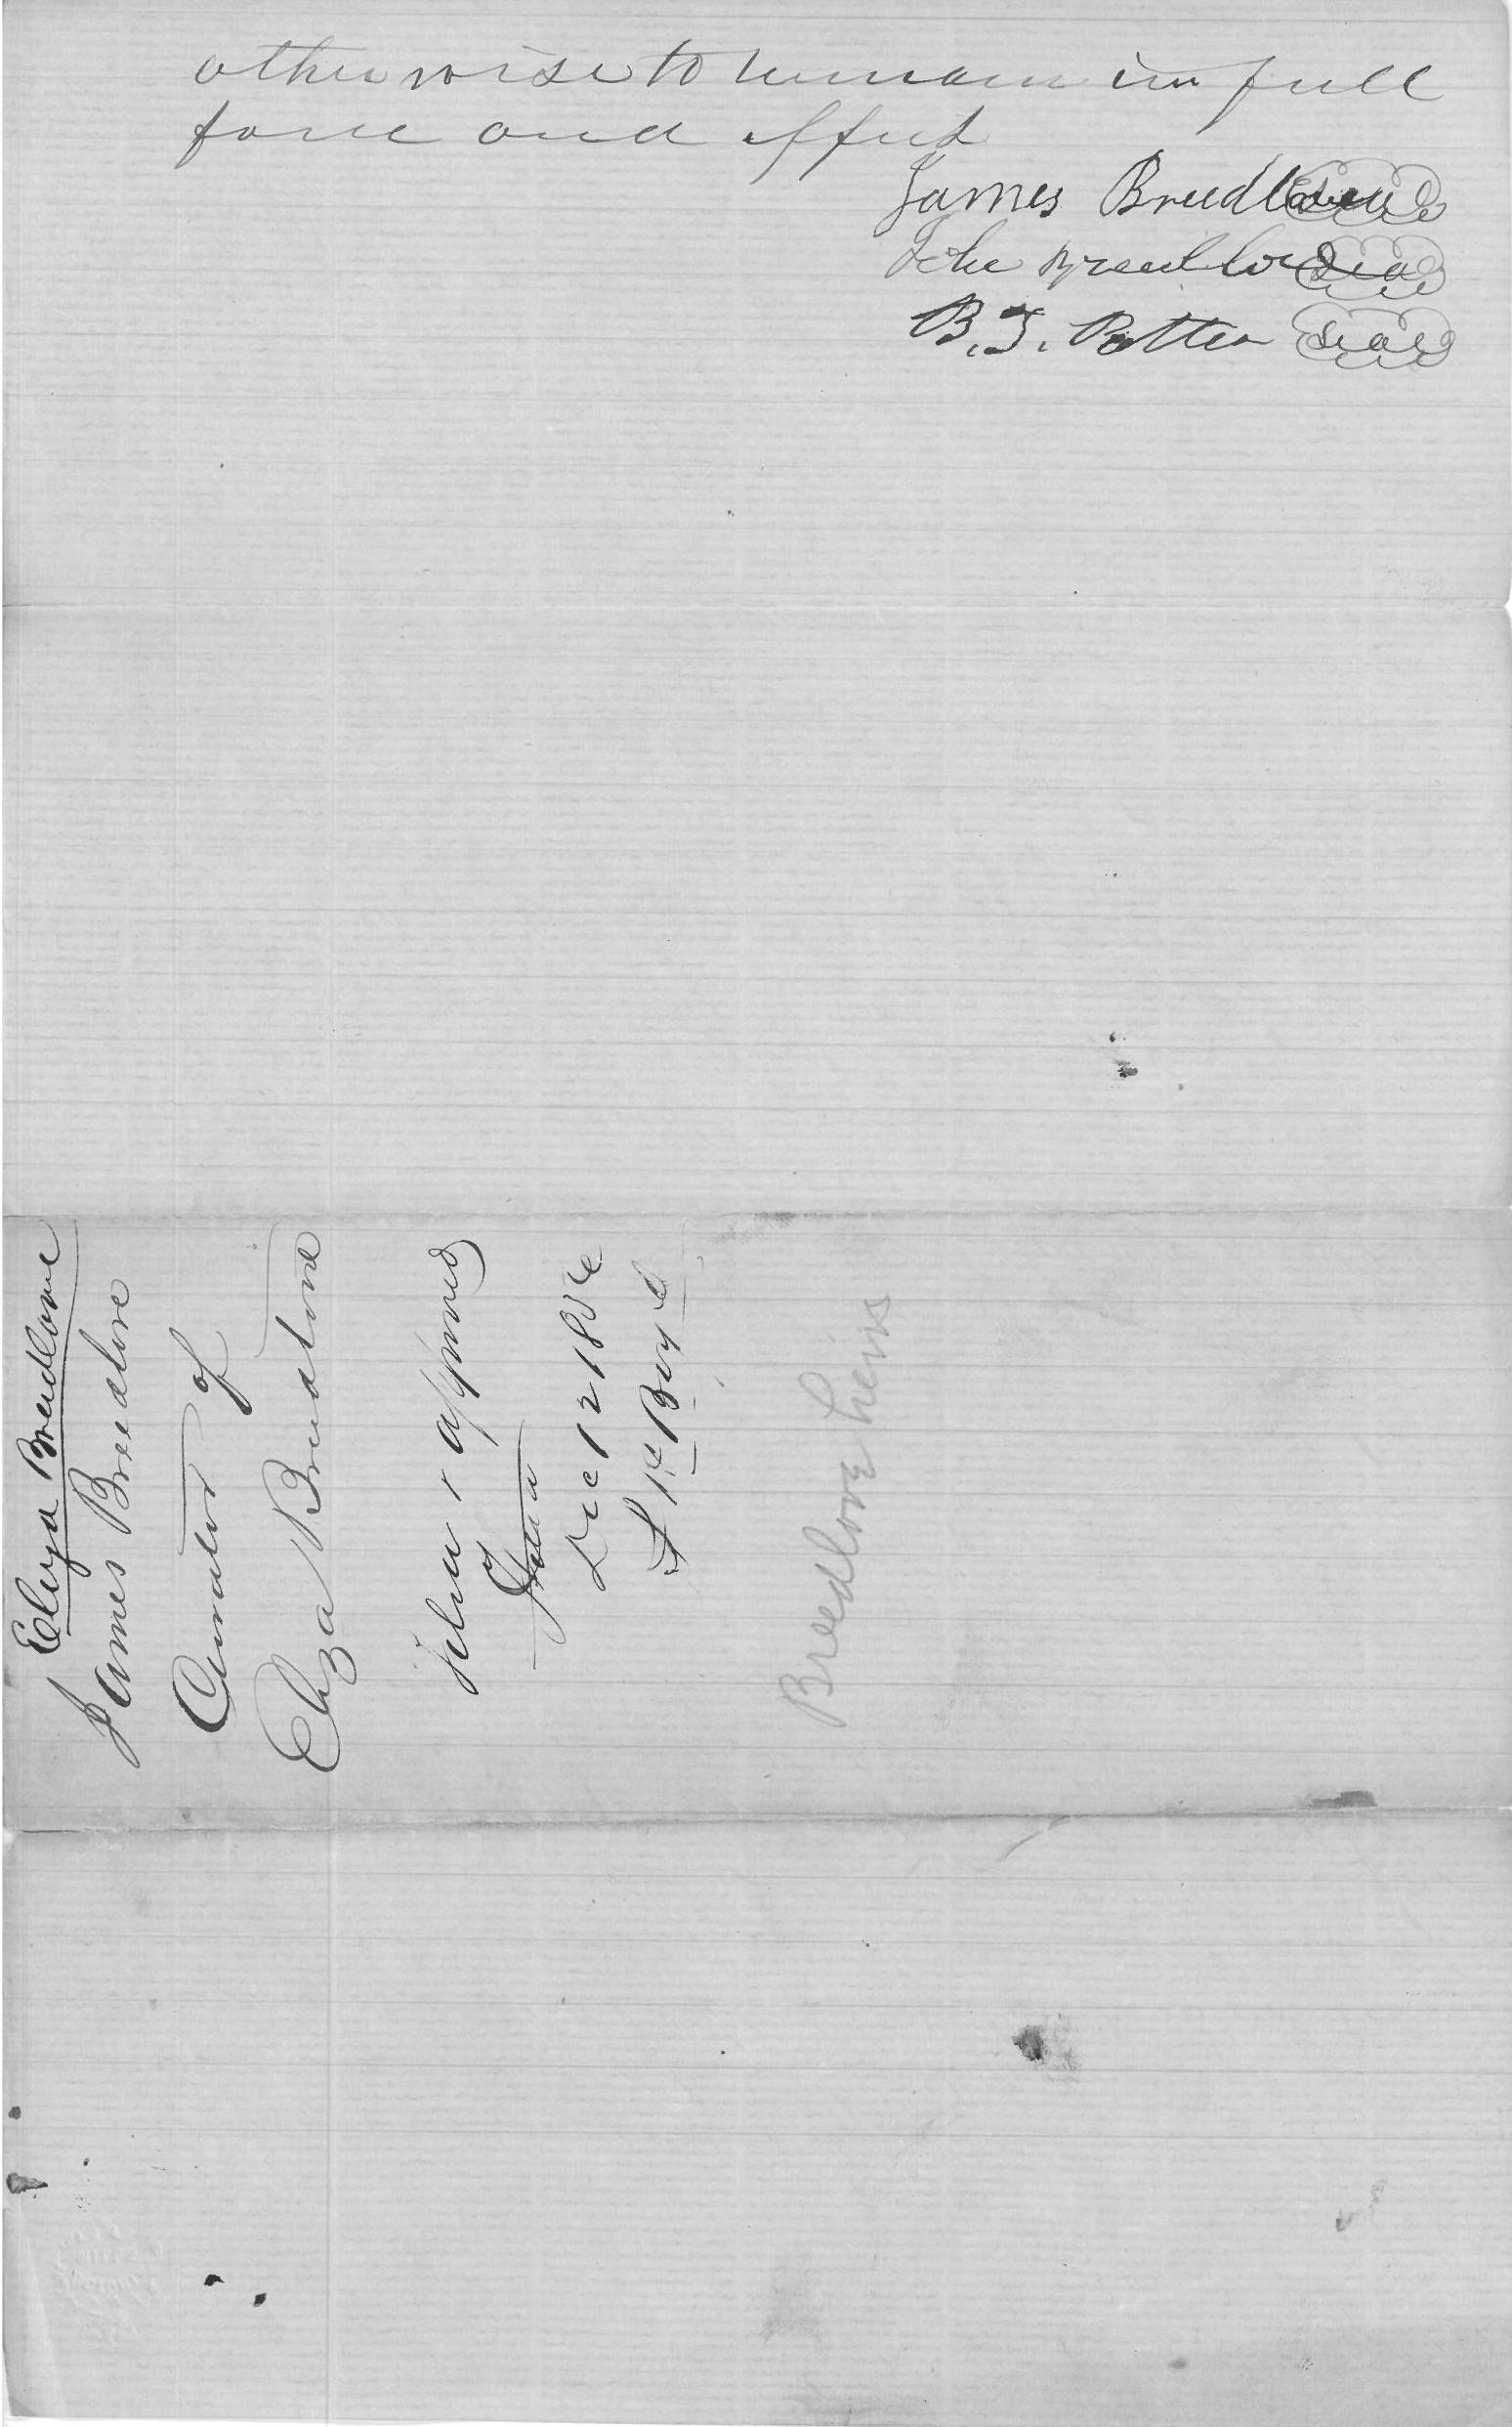 otherwise to remain in full
force and effect
James Breedlove seal
John Breedlove seal
B. T. Potter seal
Eliza Breedlove
James Breedlove
Curator of
Eliza Breedlove
Filed & approved
Dec 12 1856
Breedlove heirs